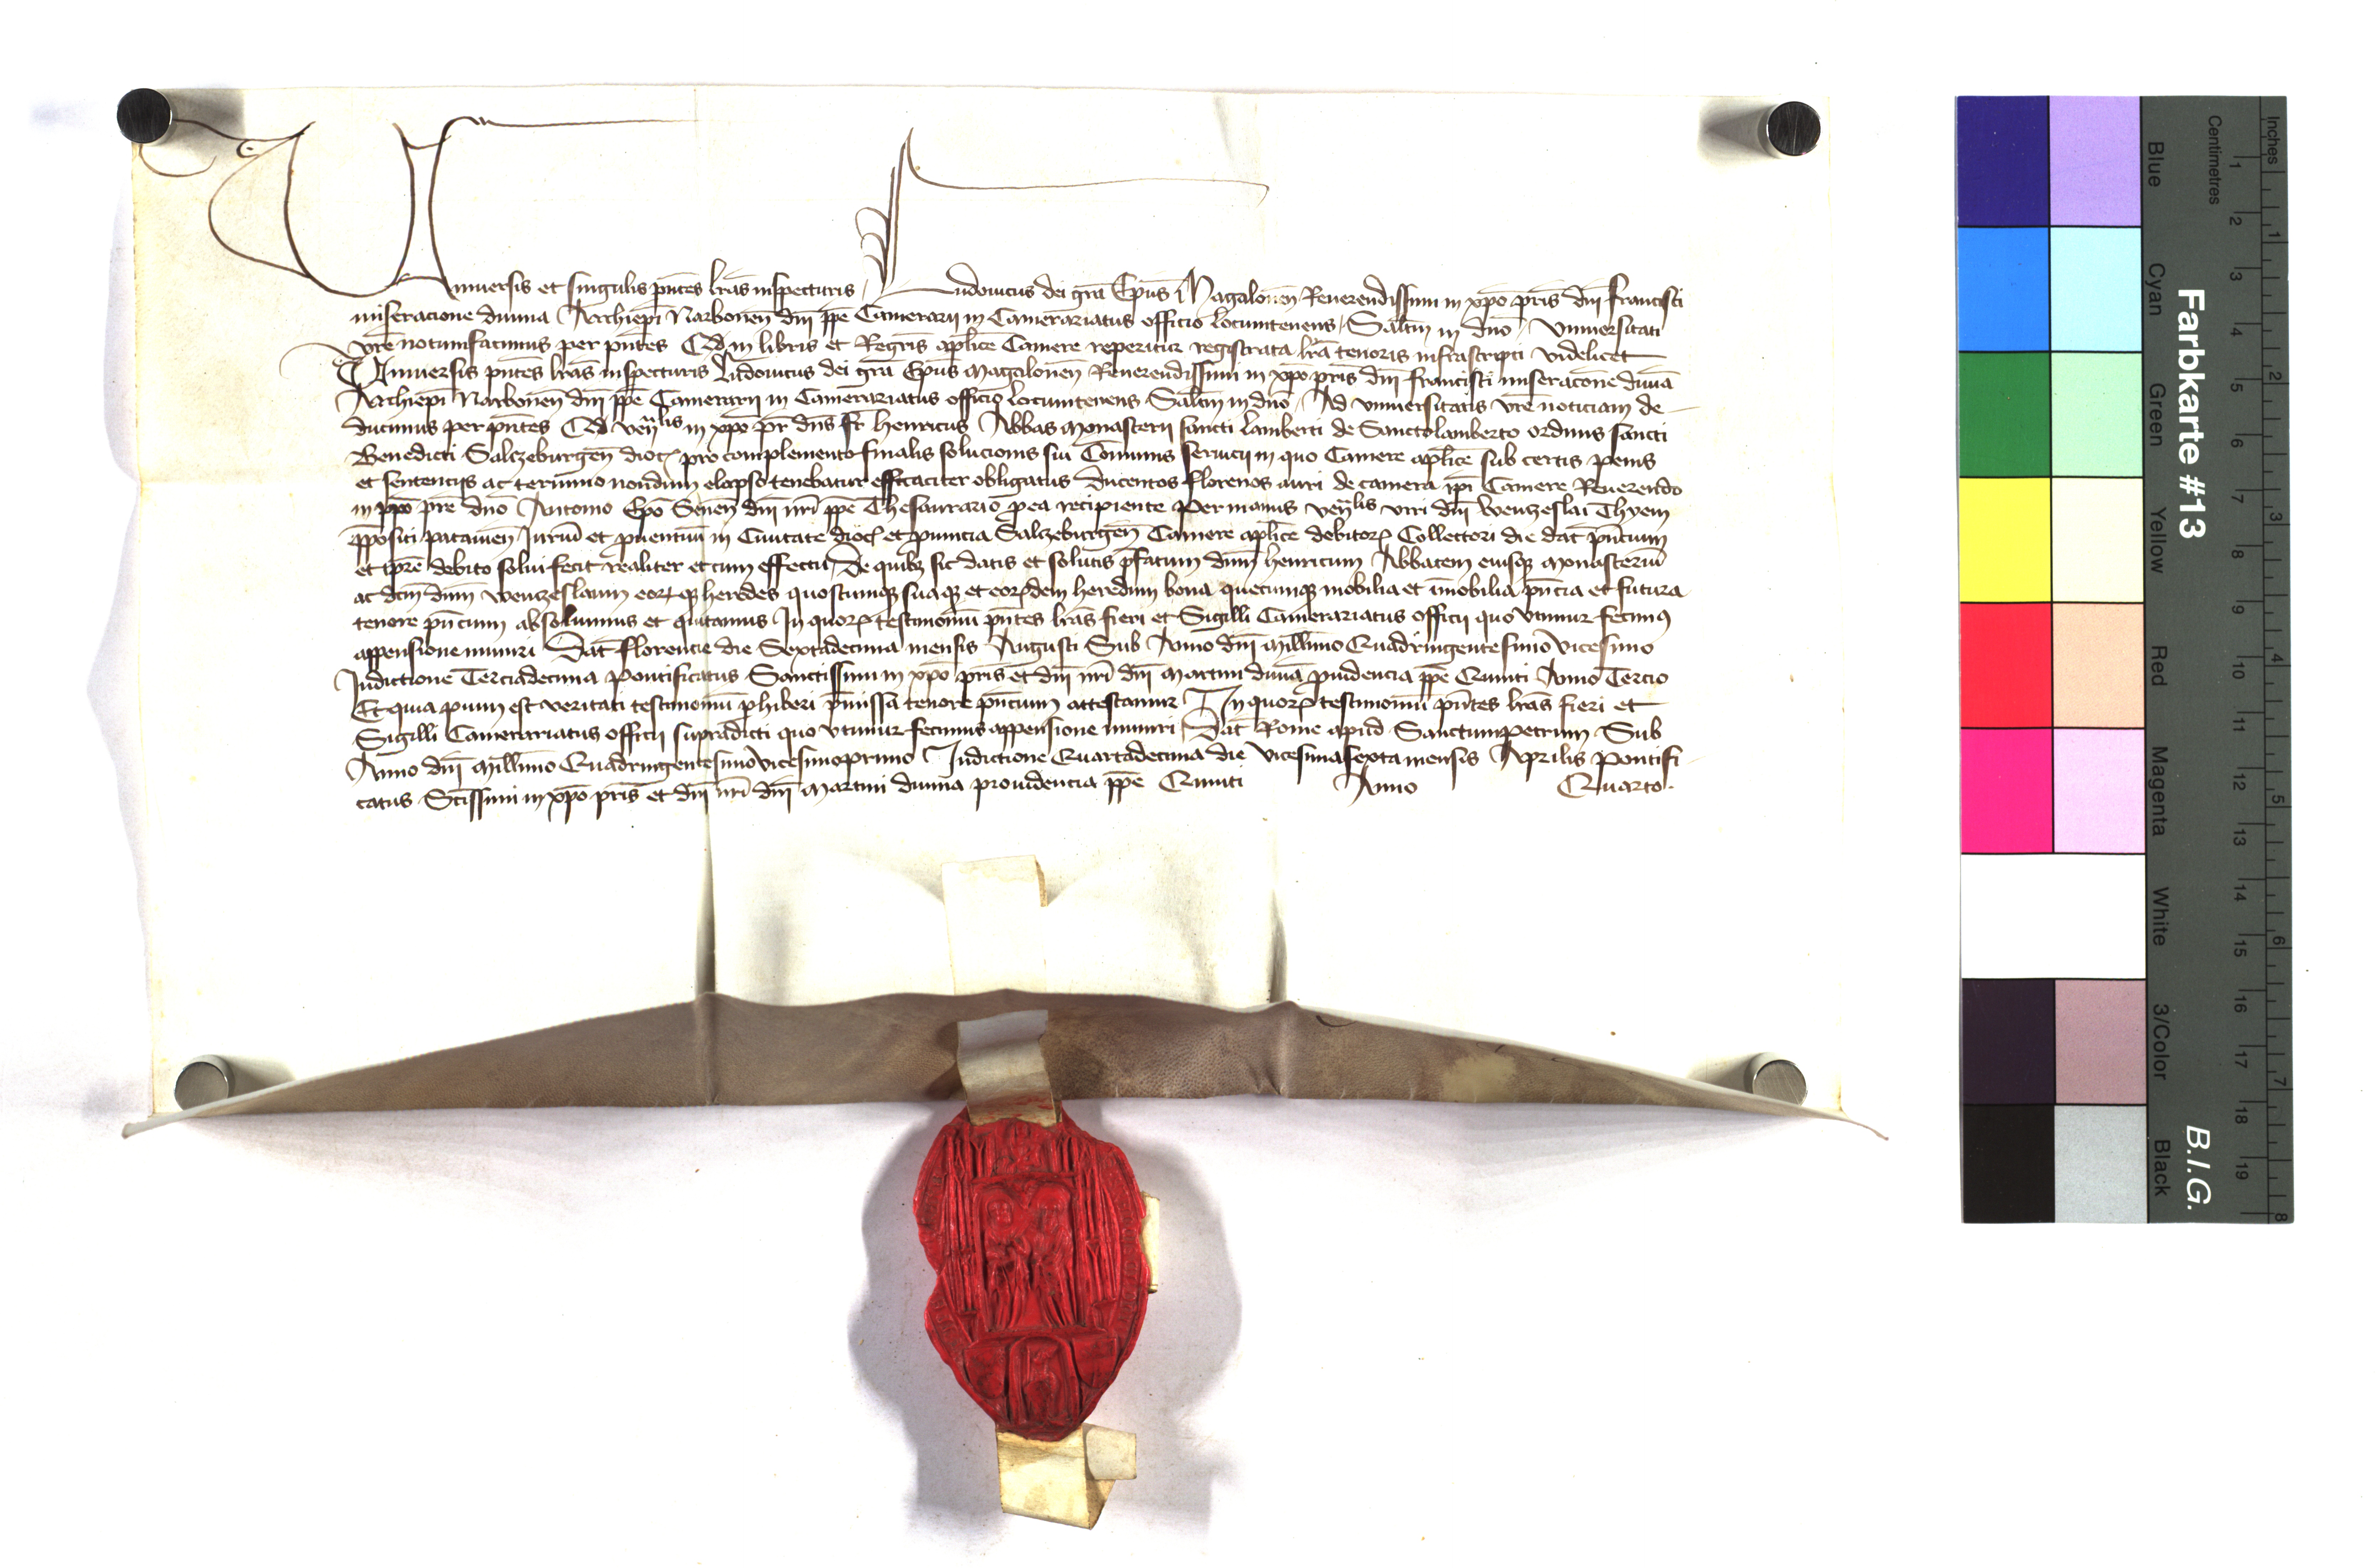 Uniuersis et singulis pn̄tes lr̄as inspecturis Ludouicus dei gr̄a Ep̄us Magalonen̄ Reuerendissimi in xp̄o pr̄is dn̄i francisci
miseracione diuina Archiep̄i Narbonen̄ dn̄i pp̄e Camerarij in Camerariatus officio locumtenens Salt̄m in dn̄o Vniuersitati
vr̄e notum facimus per pn̄tes Qd̄ in libris et Regr̄is ap̄lice Camere reperitur registrata lr̄a tenoris infrascripti videlicet
Vniuersis pn̄tes lr̄as inspecturis Ludouicus dei gr̄a Ep̄us Magalonen̄ Reuerendissimi in xp̄o pr̄is dn̄i francisci miserac̄one diuīa
Archiep̄i Narbonen̄ dn̄i pp̄e Camerarij in Camerariatus officio locumtenens Salt̄m in dn̄o Ad vniuersitatis vr̄e noticiam de-
ducimus per pn̄tes Qd̄ ven̄lis in xp̄o pr̄ dn̄s fr̄ Henricus Abbas Monasterij sancti Lamberti de Sanctolamberto ordinis sancti
Benedicti Salczeburgen̄ dioc̄ pro complemento finalis solucionis sui Com̄unis seruicij in quo Camere ap̄lice sub certis penis
et sentencijs ac termino nondum elapso tenebatur efficaciter obligatus Ducentos florenos auri de camera ip̄i Camere Reuerendo
in xp̄o pr̄e dn̄o Antonio Ep̄o Senen̄ dn̄i nr̄i pp̄e Thesaurario p̄ ea recipiente Per manus ven̄lis viri dn̄i Wenzeslai Thyem
p̄positi patauien̄ Iuriū et puentuū in Ciuitate dioc̄ et puincia Salczeburgen̄ Camere ap̄lice debitorꝝ Collectori die dat̄ pn̄cium
et tp̄re debito solui fecit realiter et cum effectu De quibꝫ sic datis et solutis p̄fatum dn̄m henricum Abbatem eiusqꝫ Monasteriū
ac dc̄m dn̄m wenczeslaum eorꝝqꝫ heredes quoscumqꝫ suaqꝫ et eorꝝdem heredum bona quecumqꝫ mobilia et īmobilia pn̄cia et futura
tenore pn̄cium absoluimus et quitamus In quorꝝ testimoniū pn̄tes lr̄as fieri et Sigilli Camerariatus officij quo vtimur fecimꝰ
appensione muniri Dat̄ florencie die Sextadecima mensis Augusti Sub Anno dn̄i Mill̄imo Quadringentesimo vicesimo
Indictione Terciadecima Pontificatus Sanctissimi in xp̄o pr̄is et dn̄i nr̄i dn̄i Martini diuīa puidencia pp̄e Quinti Anno Tercio
Et quia pium est veritati testimoniū phiberi p̄missa tenore pn̄cium attestamur In quorꝝ testimoniū pn̄tes lr̄as fieri et
Sigilli Camerariatus officij supradicti quo vtimur fecimus appensione muniri Dat̄ Rome apud Sanctumpetrum Sub
Anno dn̄i Mill̄imo Quadringentesimo vicesimoprimo Indictione Quartadecima die vicesimasexta mensis Aprilis Pontifi-
catus Sc̄issimi in xp̄o pr̄is et dn̄i nr̄i dn̄i Martini diuina prouidencia pp̄e Quinti Anno Quarto.
Farbkarte #13 B.I.G.
Inches 1 2 3 4 5 6 7 8
Centimetres 1 2 3 4 5 6 7 8 9 10 11 12 13 14 15 16 17 18 19
Blue Cyan Green Yellow Red Magenta White 3/Color Black